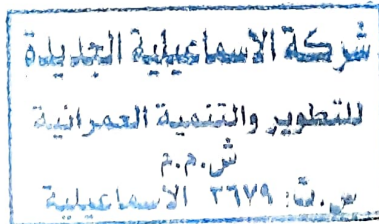 شركة الاسماعيلية الجديدة
للتطوير والتنمية العمرانية
ش.م.م
س.ت: ٢٦٧٩ الاسماعيلية